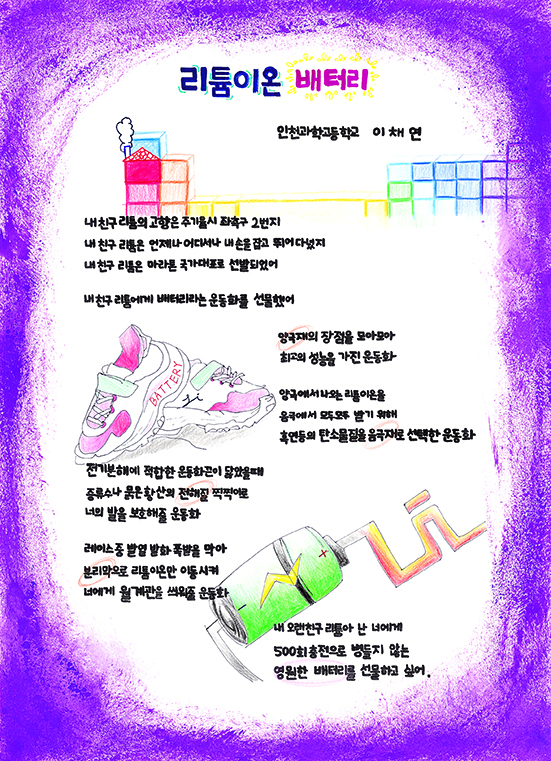 리튬이온 배터리
인천과학고등학교 이채연
내 친구 리튬의 고향은 주기율시 좌측구 2번지
내 친구 리튬은 언제나 어디서나 내 손을 잡고 뛰어다녔지
내 친구 리튬은 마라톤 국가대표로 선발되었어
내 친구 리튬에게 배터리라는 운동화를 선물했어
양극재의 장점을 모아모아
최고의 성능을 가진 운동화
양극에서 나오는 리튬이온을
음극에서 모두모두 받기 위해
흑연등의 탄소물질을 음극재로 선택한 운동화
BATTERY
Li
전기분해에 적합한 운동화끈이 닳았을때
증류수나 묽은 황산의 전해질 찍찍이로
너의 발을 보호해줄 운동화
레이스 중 발열 발화 폭발을 막아
분리막으로 리튬이온만 이동시켜
너에게 월계관을 씌워줄 운동화
+
-
Li
내 오랜친구 리튬아 난 너에게
500회 충전으로 병들지 않는
영원한 배터리를 선물하고 싶어.